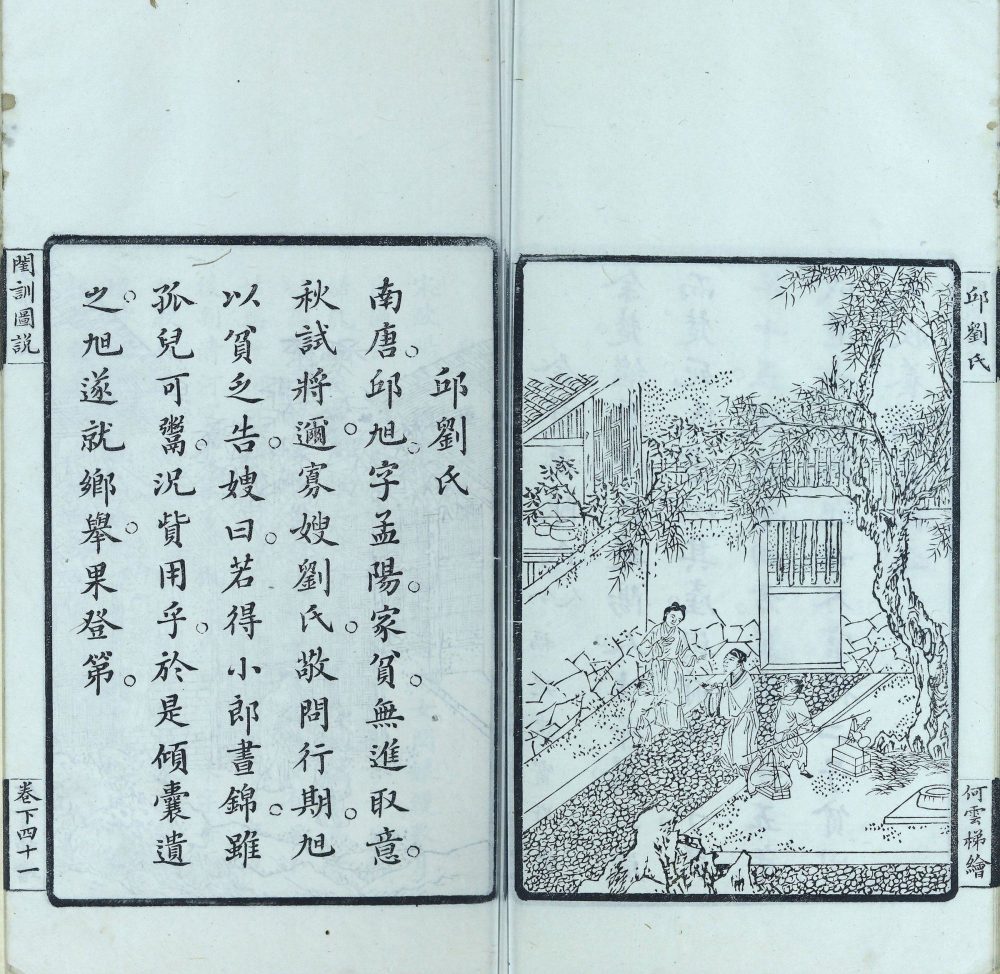 邱劉氏
何雲梯繪
邱劉氏
南唐邱旭字孟陽家貧無進取意
秋試將邇寡嫂劉氏敬問行期旭
以貧乏告嫂曰若得小郎晝錦雖
孤兒可鬻況貲用乎於是傾囊遺
之旭遂就鄉舉果登第
閨訓圖說
卷下四十一